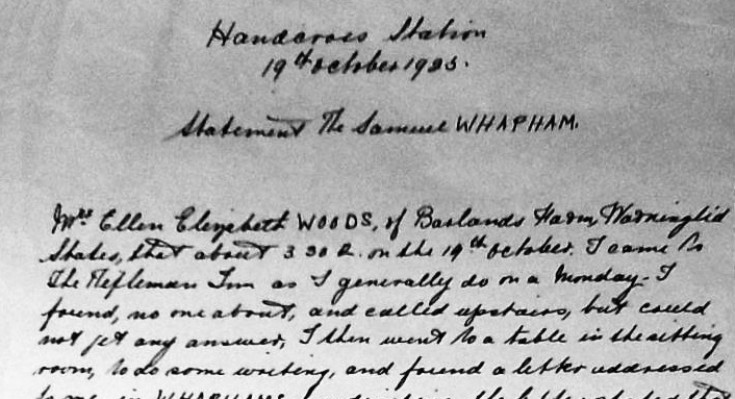 Handcross Station
19th October 1925.
Statement The Samuel WHAPHAM.
Mrs Ellen Elizebeth WOODS, of Baslands Farm, Warninglid
States, that about 3 30 P. on the 19th October. I came to
The Rifleman Inn as I generally do on a Monday - I
found, no one about, and called upstairs, but could
not get any answer, I then went to a table in the sitting
room, to do some writing, and found a letter addressed
to me in WHAPHAMS